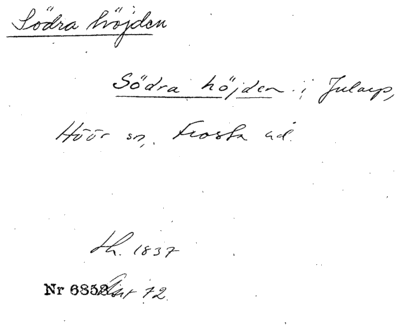 Södra höjden
Södra höjden i Jularp,
Höör sn, Frosta hd.
Lh. 1837
Nr 6352 Akt 72.